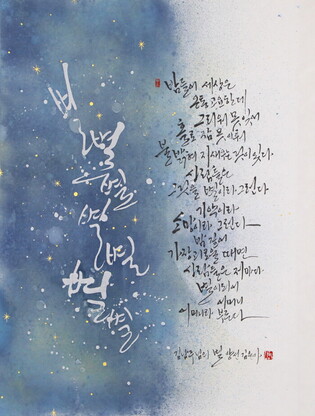 별
별
별
별
별
별
별
밤들어 세상은
온통 고요한데
그리워 못 잊어
홀로 잠 못 이뤄
불 밝혀 지새우는 것이 있다
사람들은
그것을 별이라 그런다
기약이라
소망이라 그런다
밤 깊어
가장 괴로울 때면
사람들은 저마다
별이 되어 어머니
어머니라 부른다
김남주님의 별